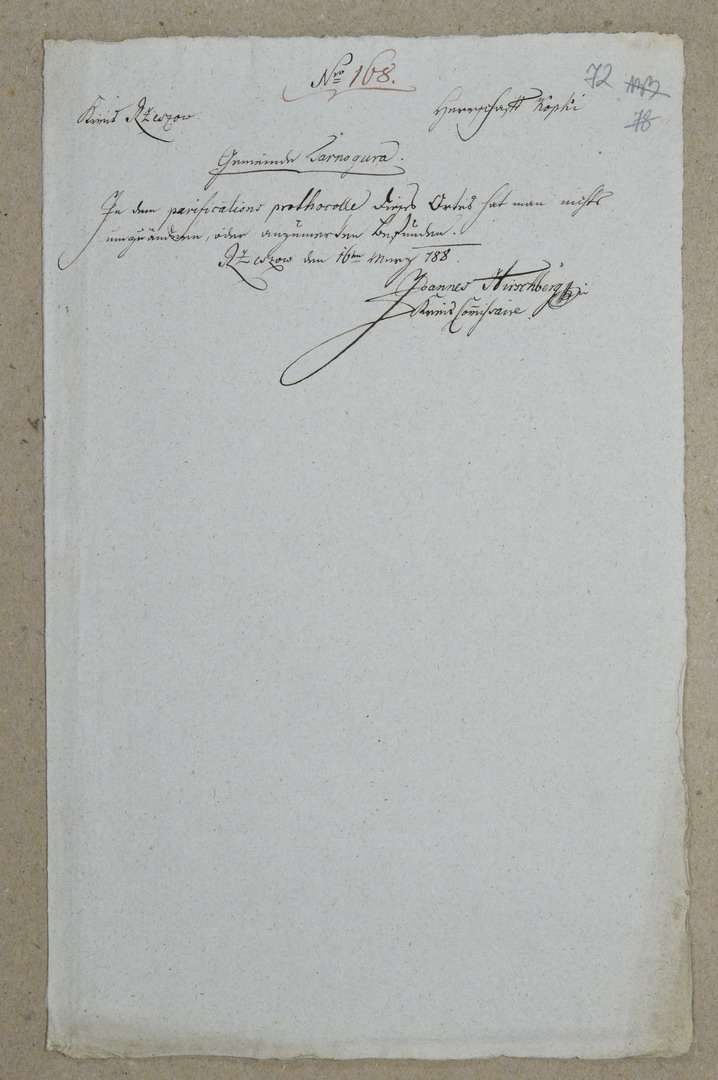 Nro 168.
72
78
Kreis Rzeszow
Herrschaft Kopki
Gemeinde Tarnogura.
In dem parifications prothocolle dieses Ortes hat man nichts
umzuändern, oder anzumerken befunden.
Rzeszow den 16ten Merz 788.
Joannes Hirschberg
Kreis Commissaire